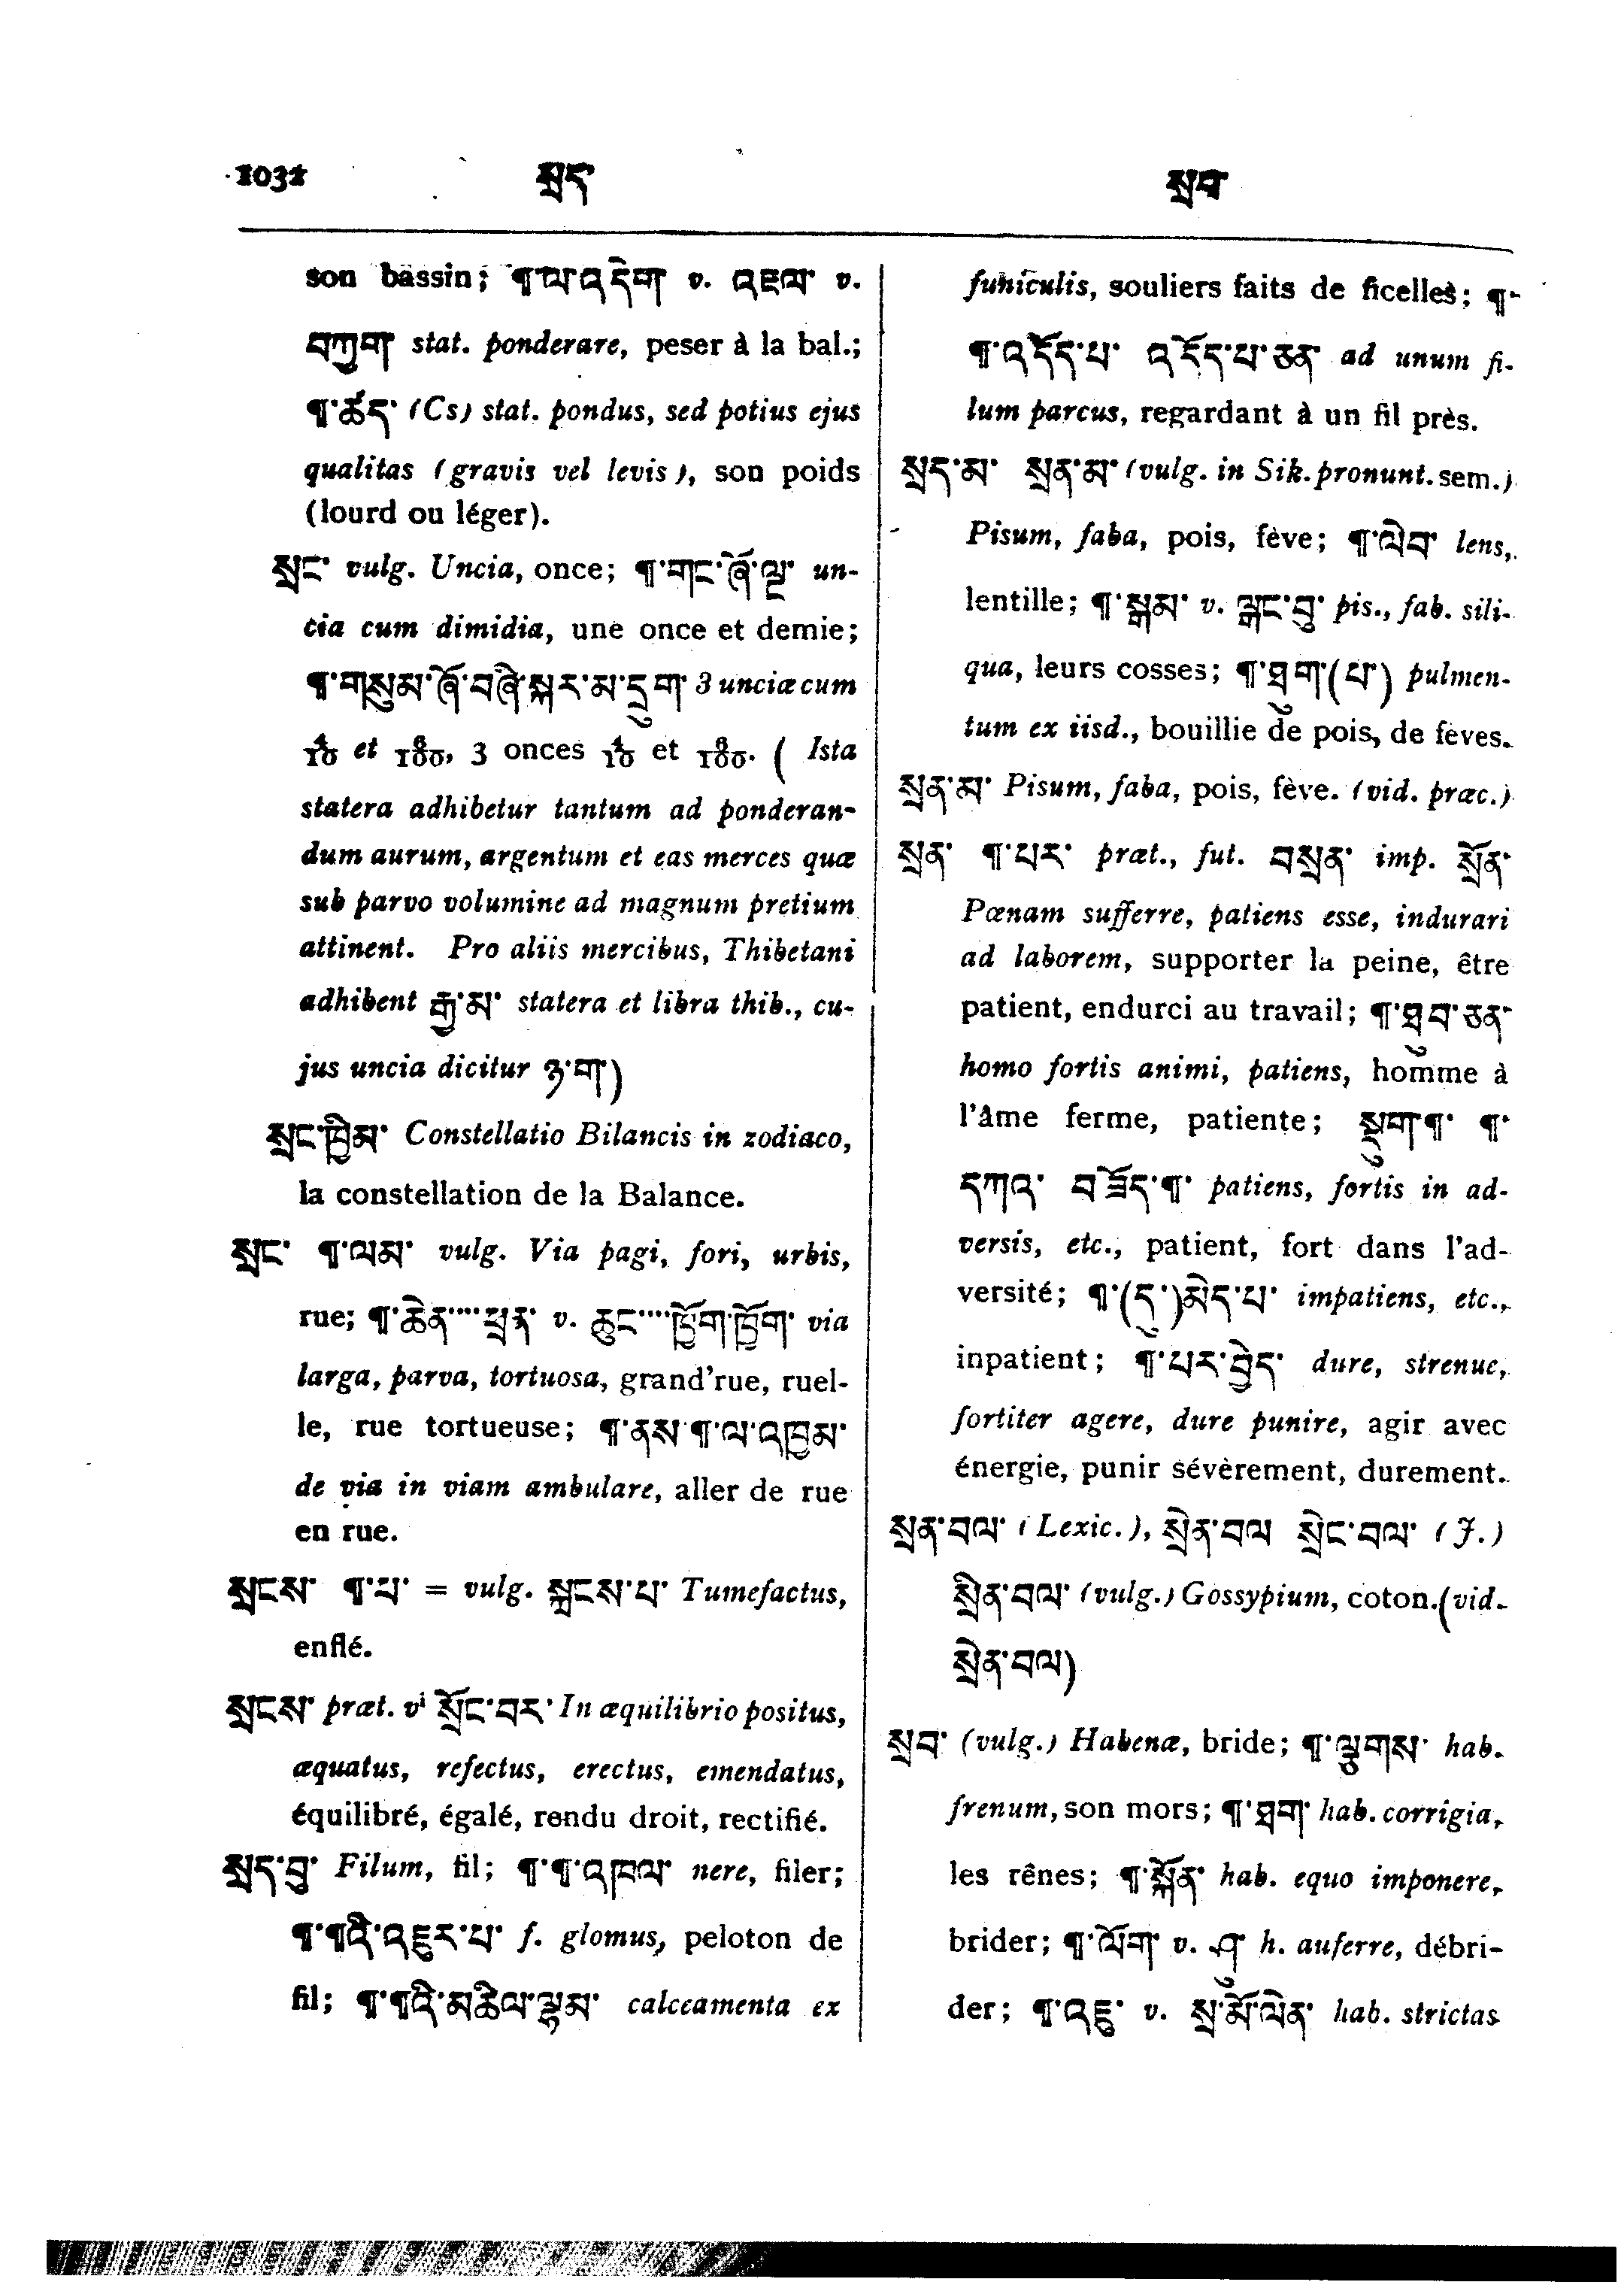 1032 སྲད སྲབ
son bassin; ¶་ལ་འདེག v. འཇལ་ v.
བཀྱག stat. ponderare, peser à la bal.;
¶་ཚད་ (Cs) stat. pondus, sed potius ejus
qualitas (gravis vel levis), son poids
(lourd ou léger).
སྲང་ vulg. Uncia, once; ¶་གང་ཞོ་ལྔ་ un-
cia cum dimidia, une once et demie;
¶་གསུམ་ཞོ་བཞི་སྐར་མ་དྲུག་ 3 unciæ cum
4/10 et 8/100, 3 onces 4/10 et 8/100. ( Ista
statera adhibetur tantum ad ponderan-
dum aurum, argentum et eas merces quæ
sub parvo volumine ad magnum pretium
attinent. Pro aliis mercibus, Thibetani
adhibent རྒྱ་མ་ statera et libra thib., cu-
jus uncia dicitur ཉ་ག)
སྲང་ཁྱིམ་ Constellatio Bilancis in zodiaco,
la constellation de la Balance.
སྲང་ ¶་ལམ་ vulg. Via pagi, fori, urbis,
rue; ¶་ཆེན་....ཕྲན་ v. ཆུང་....ཁྱོག་ཁྱོག་ via
larga, parva, tortuosa, grand'rue, ruel-
le, rue tortueuse; ¶་ནས་¶་ལ་འཁྱམ་
de via in viam ambulare, aller de rue
en rue.
སྲངས་ ¶་པ་ = vulg. སྐྲངས་པ་ Tumefactus,
enflé.
སྲངས་ præt. vi སྲོང་བར་ In æquilibrio positus,
æquatus, refectus, erectus, emendatus,
équilibré, égalé, rendu droit, rectifié.
སྲད་བུ་ Filum, fil; ¶་¶་འཁལ་ nere, filer;
¶་¶འི་འཇུར་པ་ f. glomus, peloton de
fil; ¶་¶འི་མཆིལ་ལྷམ་ calceamenta ex
funiculis, souliers faits de ficelles; ¶་
¶་འདོད་པ་ འདོད་པ་ཅན་ ad unum fi-
lum parcus, regardant à un fil près.
སྲད་མ་ སྲན་མ་ (vulg. in Sik. pronunt. sem.)
Pisum, faba, pois, fève; ¶་ལེབ་ lens,
lentille; ¶་སྒམ་ v. ལྒང་བུ་ pis., fab. sili-
qua, leurs cosses; ¶་ཐུག་(པ་) pulmen-
tum ex iisd., bouillie de pois, de fèves.
སྲན་མ་ Pisum, faba, pois, fève. (vid. præc.)
སྲན་ ¶་པར་ præt., fut. བསྲན་ imp. སྲོན་
Pœnam sufferre, patiens esse, indurari
ad laborem, supporter la peine, être
patient, endurci au travail; ¶་ཐུབ་ཅན་
homo fortis animi, patiens, homme à
l'âme ferme, patiente; སྡུག¶་ ¶་
དཀའ་ བཟོད་¶་ patiens, fortis in ad-
versis, etc., patient, fort dans l'ad-
versité; ¶་(དུ་)མེད་པ་ impatiens, etc.,
inpatient; ¶་པར་བྱེད་ dure, strenue,
fortiter agere, dure punire, agir avec
énergie, punir sévèrement, durement.
སྲན་བལ་ (Lexic.), སྲེན་བལ སྲེང་བལ་ (J.)
སྲིན་བལ་ (vulg.) Gossypium, coton. (vid.
སྲེན་བལ)
སྲབ་ (vulg.) Habenæ, bride; ¶་ལྕགས་ hab.
frenum, son mors; ¶་ཐག་ hab. corrigia,
les rênes; ¶་སྐྲོན་ hab. equo imponere,
brider; ¶་ལོག་ v. ཤུ་ h. auferre, débri-
der; ¶་འཇུ་ v. སྲ་མོ་ལེན་ hab. strictas